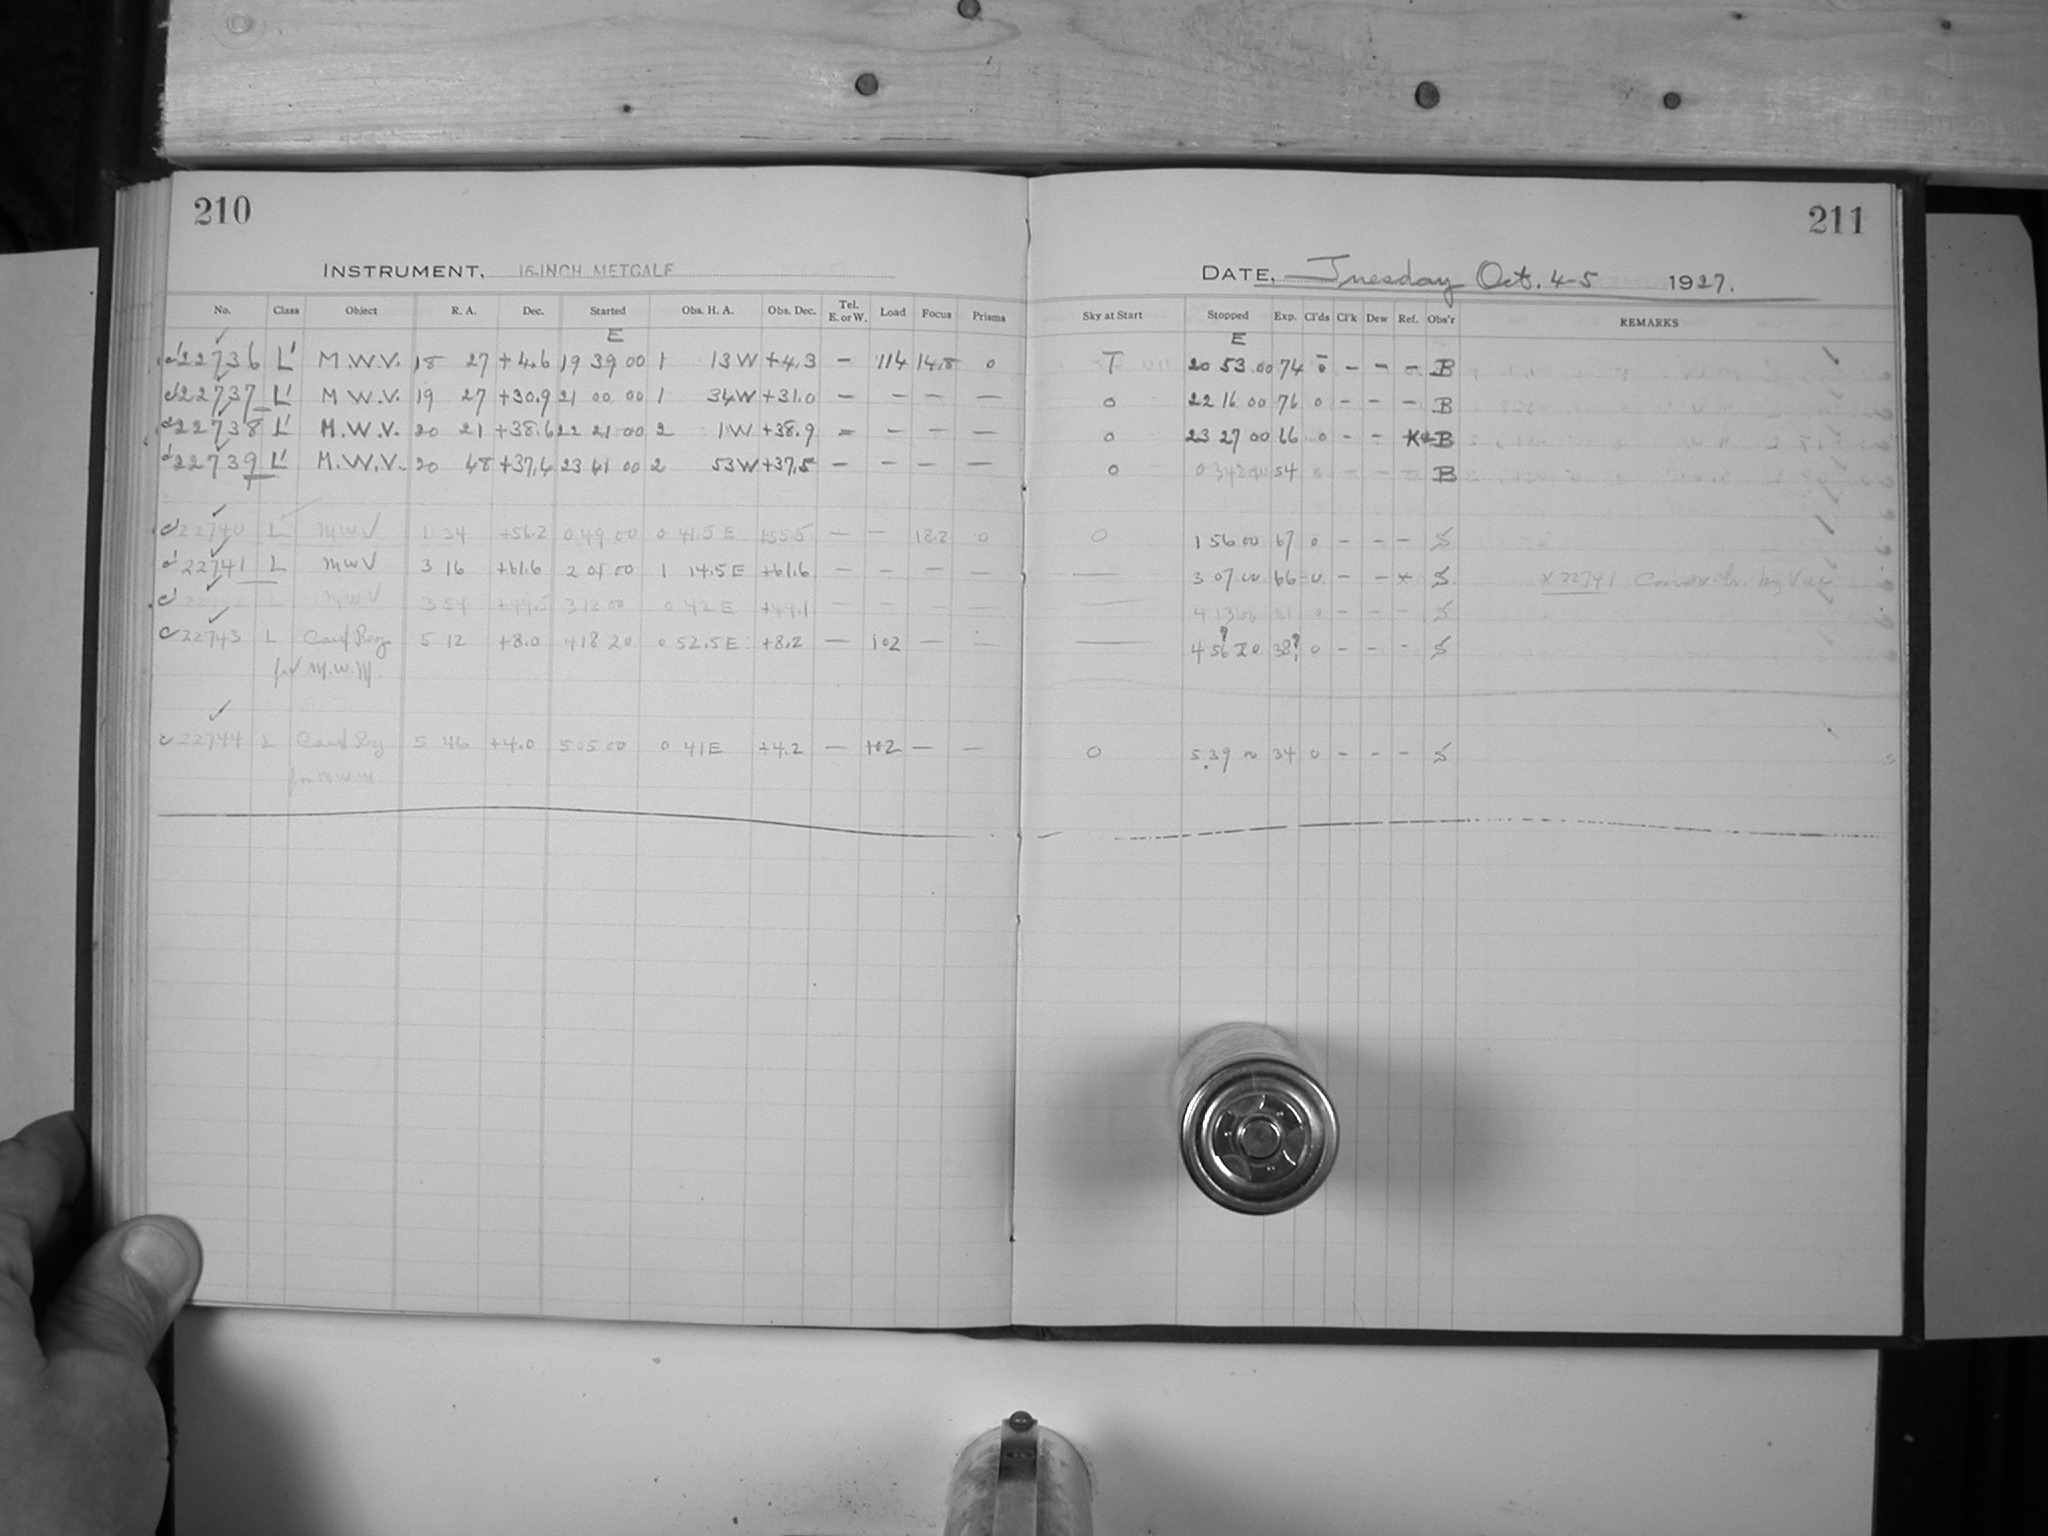 210
211
INSTRUMENT, 16-INCH METCALF
DATE, Tuesday Oct. 4-5 1927.
No. Class Object R. A. Dec. Started Obs. H. A. Obs. Dec. Tel. E. or W. Load Focus Prisms Sky at Start Stopped Exp. Cl'ds Cl'k Dew Ref. Obs'r REMARKS
E E
22736 L' M.W.V. 18 27 +4.6 19 39 00 1 13 W +4.3 – 114 14.8 0 T 20 53 00 74 – – – B
22737 L' M.W.V. 19 27 +30.9 21 00 00 1 34 W +31.0 – – – – 0 22 16 00 76 0 – – – B
22738 L' M.W.V. 20 21 +38.6 22 21 00 2 1 W +38.9 – – – – 0 23 27 00 66 0 – – B
22739 L' M.W.V. 20 48 +37.4 23 41 00 2 53 W +37.5 – – – – 0 54 0 – – – B
22740 L MWV 1 34 +56.2 0 49 00 0 41.5 E +55.5 – – 0 0 1 56 00 67 0 – – – S
22741 L MWV 3 16 +61.6 2 01 00 1 14.5 E +61.6 – – – – — 3 07 00 66 0 – – x S x 22741
L MWV 3 54 3 12 00 0 42 E +44.1 – – – – — 0 – – – S
22743 L 5 12 +8.0 4 18 20 0 52.5 E +8.2 – 102 – – — 4 56 38? 0 – – – S
for M.W.M.
22744 L 5 46 +4.0 5 05 00 0 41 E +4.2 – 102 – – 0 5 39 34 0 – – – S
for M.W.M.